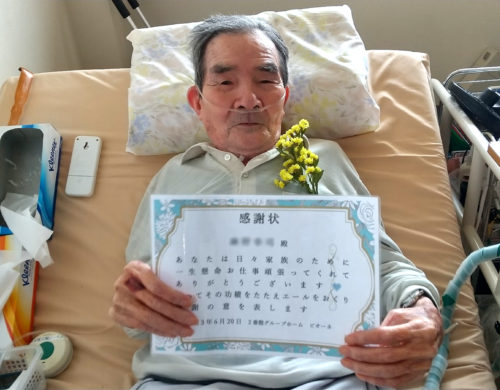 感謝状
殿
あなたは日々家族のために
一生懸命お仕事頑張ってくれて
ありがとうございます
てその功績をたたえエールをおくり
謝の意を表します
3年6月20日 2番館グループホーム ビオーネ
Kleenex
Kleenex